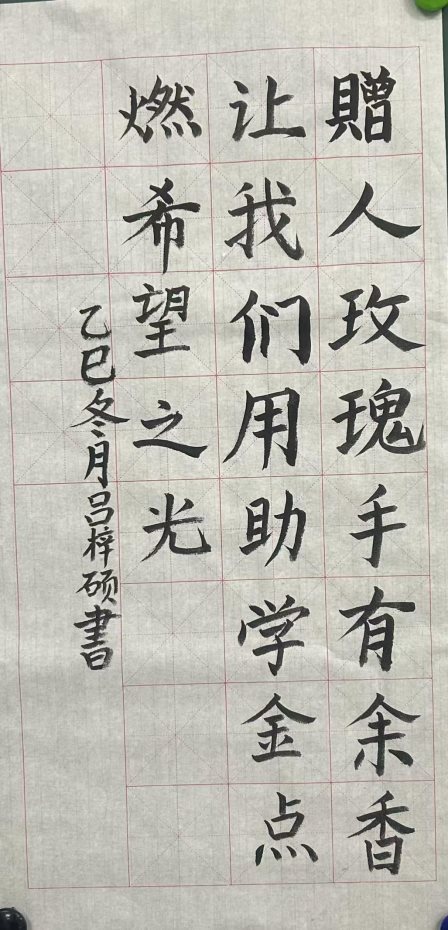 贈人玫瑰手有余香
让我们用助学金点
燃希望之光
乙巳冬月吕梓硕書